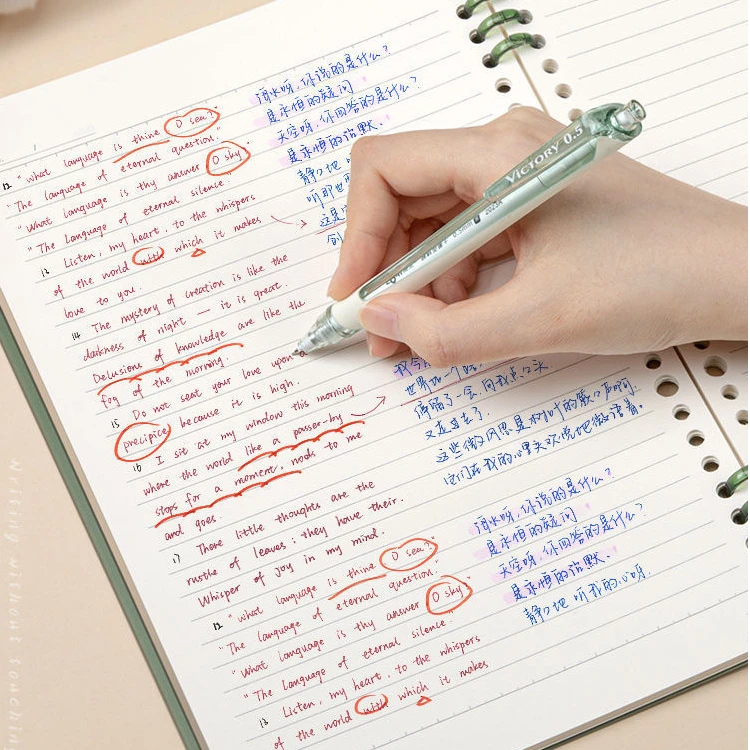 12 "what language is thine O sea?"
"The language of eternal question."
"What language is thy answer O sky
"The Language of eternal silence."
13 Listen, my heart, to the whispers
of the world with which it makes
love to you.
14 The mystery of creation is like the
darkness of night — it is great.
Delusions of knowledge are like the
Fog of the morning.
15 Do not seat your love upon
precipice because it is high.
16 I sit at my window this morning
where the world like a passer-by
stops for a moment, nods to me
and goes.
17 There little thoughts are the
rustle of leaves; they have their.
Whisper of joy in my mind.
12 "what language is thine O sea?"
"The language of eternal question."
"What language is thy answer O sky
"The Language of eternal silence.
13 Listen, my heart, to the whispers
of the world with which it makes
海水呀,你说的是什么?
是永恒的疑问
天空呀,你回答的是什么?
是永恒的沉默.
静静地 听
听那世
这是
创
我今
世界如一个路
停留了一会,向我点点头
又走过去了.
这些微风思是树叶的簌簌声啊.
它们在我的心里欢悦地微语着.
海水呀,你说的是什么?
是永恒的疑问
天空呀,你回答的是什么?
是永恒的沉默.
静静地 听我的心呀.
VICTORY 0.5
writing without touching